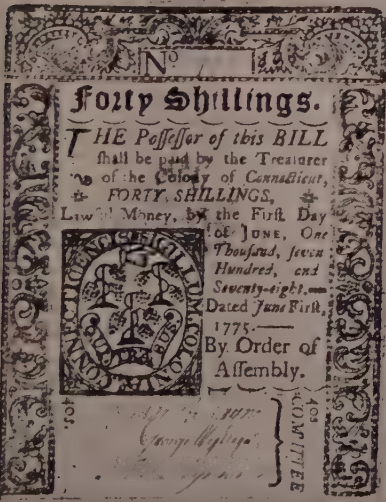 No
Forty Shillings.
THE Possessor of this BILL
shall be paid by the Treasurer
of the Colony of Connecticut,
FORTY SHILLINGS,
Lawful Money, by the First Day
of JUNE, One
Thousand, seven
Hundred, and
Seventy-eight.—
Dated June First,
1775.—
By Order of
Assembly.
SIGILLUM. COLONIÆ CONNECTICENSIS
40s.
George Wyllys
COMMITTEE
40s